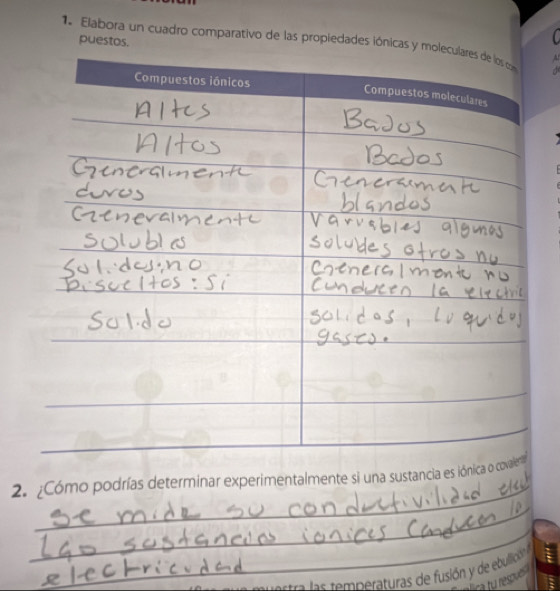 1. Elabora un cuadro comparativo de las propiedades iónicas y moleculares de los com
puestos.
Compuestos iónicos Compuestos moleculares
Altos Bajos
Altos Bajos
Generalmente Generalmente
duros blandos
Generalmente Variables algunos
solubles solubles otros no
Solidos: no Generalmente no
Disueltos: Si Conducen la electric
Solido solidos, liquidos
gases.
2. ¿Cómo podrías determinar experimentalmente si una sustancia es iónica o covalente
se mide su conductivilidad elect
Las sustancias ionicas Conducen la
electricidad
muestra las temperaturas de fusión y de ebullición
tu respuesta